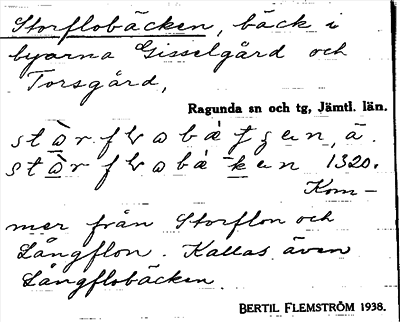 Storflobäcken, bäck i
byarna Gisselgård och
Torsgård,
Ragunda sn och tg, Jämtl. län.
1320.
Kom-
mer från Storflon och
Långflon. Kallas även
Långflobäcken.
BERTIL FLEMSTRÖM 1938.